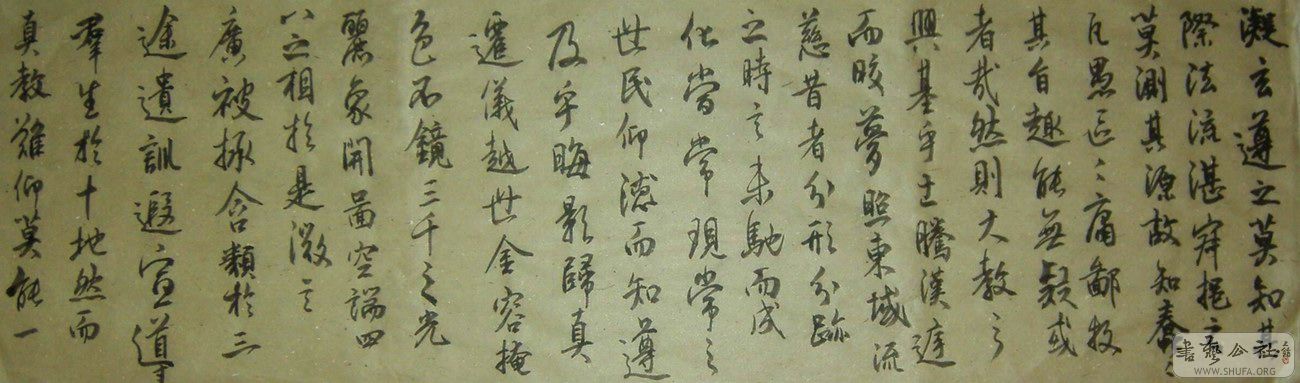 凝玄遵之莫知其
際法流湛寂挹之
莫測其源故知蠢〻
凡愚區〻庸鄙投
其旨趣能無疑或
者哉然則大教之
興基乎土騰漢庭
而皎夢照東域流
慈昔者分形分跡
之時言未馳而成
化當常現常之
世民仰德而知遵
及乎晦影歸真
遷儀越世金容掩
色不鏡三千之光
麗象開圖空端四
八之相於是微言
廣被拯含類於三
途遺訓遐宣導
羣生於十地然而
真教難仰莫能一
書藝公社
WWW.SHUFA.ORG